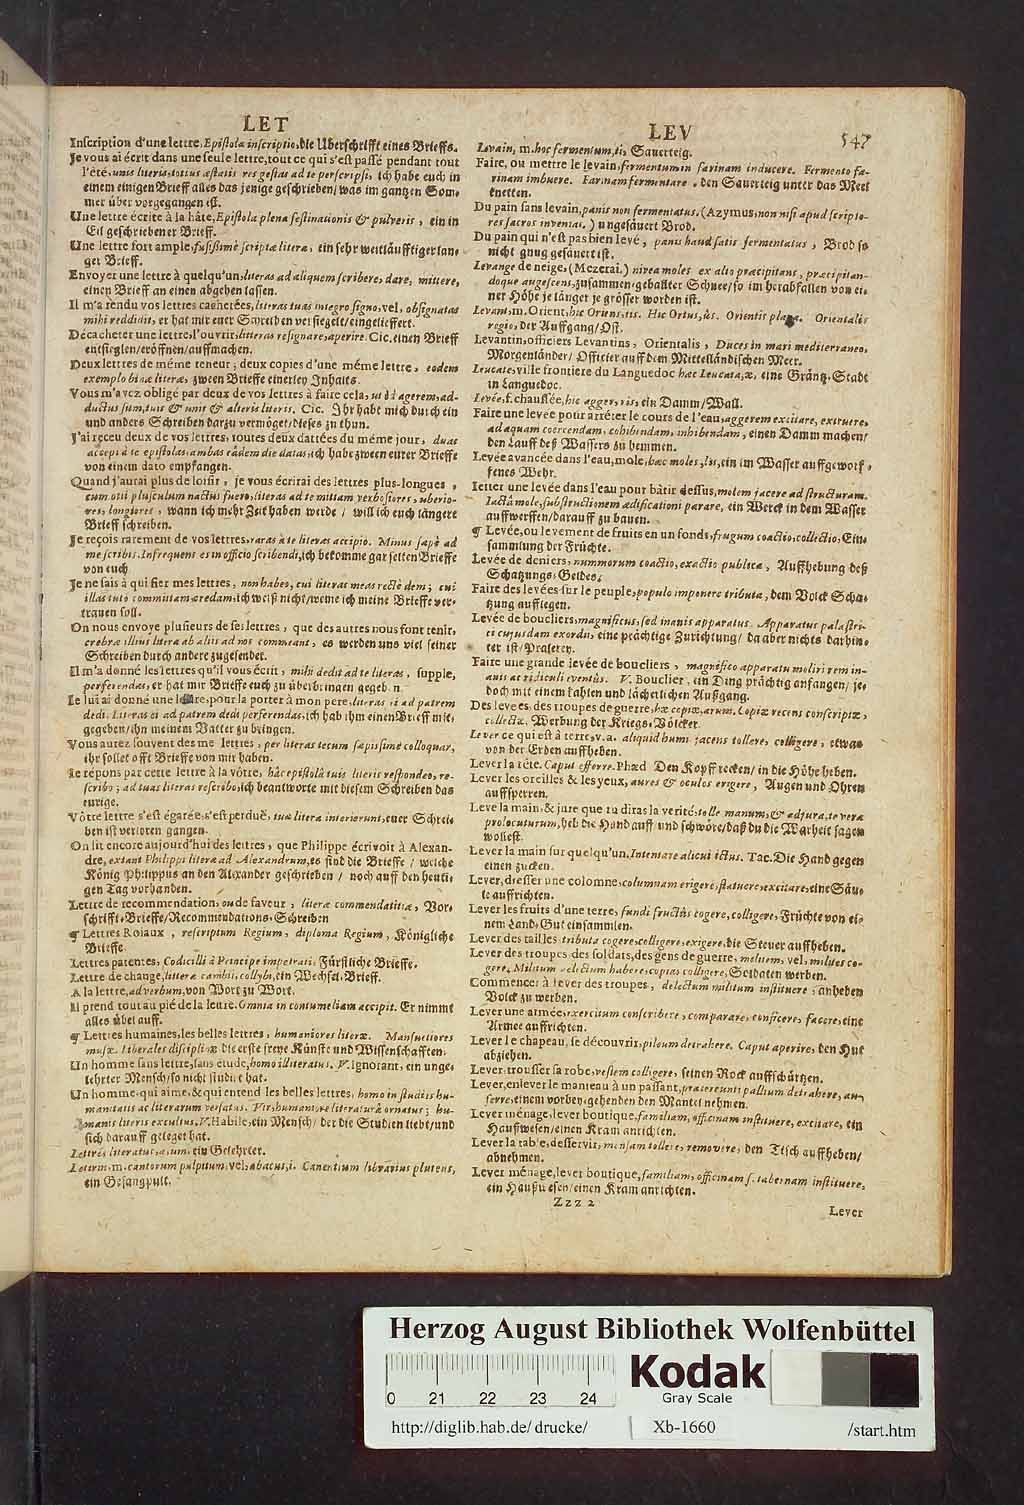 LET
Inscription d'une lettre, Epistolæ inscriptio, die Uberschrifft eines Brieffs.
Je vous ai écrit dans une seule lettre, tout ce qui s'est passé pendant tout
l'été, unis literis, totius æstatis res gestas ad te perscripsi, ich habe euch in
einem einigen Brieff alles das jenige geschrieben / was im gantzen Som-
mer über vorgegangen ist.
Une lettre écrite à la hâte, Epistola plena festinationis & pulveris, ein in
Eil geschriebener Brieff.
Une lettre fort ample, fusissimè scriptæ literæ, ein sehr weitläufftiger lan-
ger Brieff.
Envoyer une lettre à quelqu'un, literas ad aliquem scribere, dare, mittere,
einen Brieff an einen abgehen lassen.
Il m'a rendu vos lettres cachetées, literas tuas integro signo, vel, obsignatas
mihi reddidit, er hat mir euer Schreiben versiegelt / eingeliefert.
Décacheter une lettre, l'ouvrir, litteras resignare, aperire. Cic. einen Brieff
entsieglen / eröffnen / auffmachen.
Deux lettres de méme teneur; deux copies d'une méme lettre, eodem
exemplo binæ literæ, zween Brieffe einerley Inhalts.
Vous m'avez obligé par deux de vos lettres à faire cela, ut id agerem, ad-
ductus sum, tuis & unis & alteris literis. Cic. Ihr habt mich durch ein
und anders Schreiben darzu vermöget / dieses zu thun.
J'ai receu deux de vos lettres, toutes deux dattées du méme jour, duas
accepi à te epistolas, ambas eâdem die datas, ich habe zween eurer Brieffe
von einem dato empfangen.
Quand j'aurai plus de loisir, je vous écrirai des lettres plus-longues,
cum otii plusculum nactus fuero, literas ad te mittam verbosiores, uberio-
res, longiores, wann ich mehr Zeit haben werde / will ich euch längere
Brieff schreiben.
Je reçois rarement de vos lettres, raras à te literas accipio. Minus sæpè ad
me scribis. Infrequens es in officio scribendi, ich bekomme gar selten Brieffe
von euch.
Je ne sais à qui fier mes lettres, non habeo, cui literas meas rectè dem; cui
illas tutò commutam, credam, ich weiß nicht / weme ich meine Brieffe ver-
trauen soll.
On nous envoye plusieurs de ses lettres, que des autres nous font tenir,
crebræ illius literæ ab aliis ad nos commeant, es werden uns viel seiner
Schreiben durch andere zugesendet.
Il m'a donné les lettres qu'il vous écrit, mihi dedit ad te literas, supple,
perferendas, er hat mir Brieffe euch zu überbringen gegeben.
Je lui ai donné une lettre, pour la porter à mon pere, literas ei ad patrem
dedi. Literas ei ad patrem dedi perferendas, ich hab ihm einen Brieff mit-
gegeben / ihn meinem Vatter zu bringen.
Vous aurez souvent des me lettres, per literas tecum sæpissimè colloquar,
ihr sollet offt Brieffe von mir haben.
Je répons par cette lettre à la vôtre, hâc epistolâ tuis literis respondeo, re-
scribo; ad tuas literas rescribo, ich beantworte mit diesem Schreiben das
eurige.
Vôtre lettre s'est égarée, s'est perduë, tuæ literæ interierunt, euer Schrei-
ben ist verloren gangen.
On lit encore aujourd'hui des lettres, que Philippe écrivoit à Alexan-
dre, extant Philippi literæ ad Alexandrum, es sind die Brieffe / welche
König Philippus an den Alexander geschrieben / noch auff den heuti-
gen Tag vorhanden.
Lettre de recommendation, ou de faveur, literæ commendatitiæ, Vor-
schrifft-Brieffe / Recommendations-Schreiben
¶ Lettres Roiaux, rescriptum Regium, diploma Regium, Königliche
Brieffe.
Lettres patentes, Codicilli à Principe impetrati, Fürstliche Brieffe.
Lettre de change, litteræ cambii, collybi, ein Wechsel-Brieff.
A la lettre, ad verbum, von Wort zu Wort.
Il prend tout au pié de la lettre, Omnia in contumeliam accipit. Er nimmt
alles übel auff.
¶ Lettres humaines, les belles lettres, humaniores literæ. Mansuetiores
musæ. Liberales disciplinæ die erste freye Künste und Wissenschafften.
Un homme sans lettre, sans étude, homo illiteratus. V. Ignorant, ein unge-
lehrter Mensch / so nicht studirt hat.
Un homme, qui aime, & qui entend les belles lettres, homo in studiis hu-
manitatis ac literarum versatus. Vir, humaniore literaturâ ornatus; hu-
manis literis excultus. V. Habile, ein Mensch / der die Studien liebt / und
sich darauff geleget hat.
Lettrés, literatus, a, um, ein Gelehrter.
Letrin, m. cantorum pulpitum, vel, abacus, i. Canentium librarius pluteus,
ein Gesangpult.
LEV 547
Levain, m. hoc fermentum, ti, Sauerteig.
Faire, ou mettre le levain, fermentum in farinam inducere. Fermento fa-
rinam imbuere. Farinam fermentare, den Sauerteig unter das Meel
knetten.
Du pain sans levain, panis non fermentatus. (Azymus, non nisi apud scripto-
res sacros invenias.) ungesäuert Brod.
Du pain qui n'est pas bien levé, panis haud satis fermentatus, Brod so
nicht gnug gesäuert ist.
Levange de neige, (Mezerai.) nivea moles ex alto præcipitans, præcipitan-
doque augescens, zusammen-geballter Schnee / so im herabfallen von ei-
ner Höhe je länger je grösser worden ist.
Levant, m. Orient, hic Oriens, tis. Hic Ortus, ûs. Orientis plaga. Orientalis
regio, der Auffgang / Ost.
Levantin, officiers Levantins, Orientalis, Duces in mari mediterraneo,
Morgenländer / Officier auff dem Mittelländischen Meer.
Leucate, ville frontiere du Languedoc hæc Leucata, æ, eine Gräntz-Stadt
in Languedoc.
Levée, f. chaussée, hic agger, ris, ein Damm / Wall.
Faire une levée pour arréter le cours de l'eau, aggerem excitare, extruere,
ad aquam coercendam, cohibendam, inhibendam, einen Damm machen /
den Lauff deß Wassers zu hemmen.
Levée avancée dans l'eau, mole, hæc moles, lis, ein im Wasser auffgeworf-
fenes Wehr.
Ietter une levée dans l'eau pour bâtir dessus, molem jacere ad structuram.
Iactâ mole, substructionem ædificationi parare, ein Werck in dem Wasser
auffwerffen / darauff zu bauen.
¶ Levée, ou levement de fruits en un fonds, frugum coactio, collectio, Ein-
sammlung der Früchte.
Levée de deniers, nummorum coactio, exactio publica, Auffhebung deß
Schatzungs-Geldes.
Faire des levées sur le peuple, populo imponere tributa, dem Volck Scha-
tzung aufflegen.
Levée de boucliers, magnificus, sed inanis apparatus. Apparatus palæstri-
ci cujusdam exordii, eine prächtige Zurichtung / da aber nichts darhin-
ter ist / Pralerey.
Faire une grande levée de boucliers, magnifico apparatu moliri rem in-
anis ac ridiculi eventûs. V. Bouclier, ein Ding prächtig anfangen / je-
doch mit einem kahlen und lächerlichen Außgang.
Des levées, des troupes de guerre, hæ copiæ, arum. Copiæ recens conscriptæ,
collectæ. Werbung der Kriegs-Völcker.
Lever ce qui est à terre, v.a. aliquid humi jacens tollere, colligere, etwas
von der Erden auffheben.
Lever la tête. Caput efferre. Phæd Den Kopff recken / in die Höhe heben.
Lever les oreilles & les yeux, aures & oculos erigere, Augen und Ohren
auffsperren.
Leve la main, & jure que tu diras la verité, tolle manum, & adjura, te vera
prolocuturum, heb die Hand auff und schwöre / daß du die Warheit sagen
wollest.
Lever la main sur quelqu'un. Intentare alicui ictus. Tac. Die Hand gegen
einen zucken.
Lever, dresser une colomne, columnam erigere, statuere, excitare, eine Säu-
le auffrichten.
Lever les fruits d'une terre, fundi fructûs cogere, colligere, Früchte von ei-
nem Land-Gut einsammlen.
Lever des tailles tributa cogere, colligere, exigere, die Steuer auffheben.
Lever des troupes des soldats, des gens de guerre, militem, vel, milites co-
gere. Militum delectum habere, copias colligere, Soldaten werben.
Commencer à lever des troupes, delectum militum instituere, anheben
Volck zu werben.
Lever une armée, exercitum conscribere, comparare, conficere, facere, eine
Armee auffrichten.
Lever le chapeau, se découvrir, pileum detrahere. Caput aperire, den Hut
abziehen.
Lever, trousser sa robe, vestem colligere, seinen Rock auffschürtzen.
Lever, enlever le manteau à un passant, prætereunti pallium detrahere, au-
ferre, einem vorbey-gehenden den Mantel nehmen.
Lever ménage, lever boutique, familiam, officinam instituere, excitare, ein
Haußwesen / einen Kram anrichten.
Lever la table, desservir, mensam tollere, removere, den Tisch auffheben /
abnehmen.
Lever ménage, lever boutique, familiam, officinam s. tabernam instituere,
ein Haußwesen / einen Kram anrichten.
Zzz 2
Lever
Herzog August Bibliothek Wolfenbüttel
Kodak
Gray Scale
0 21 22 23 24
http://diglib.hab.de/ drucke/ Xb-1660 /start.htm